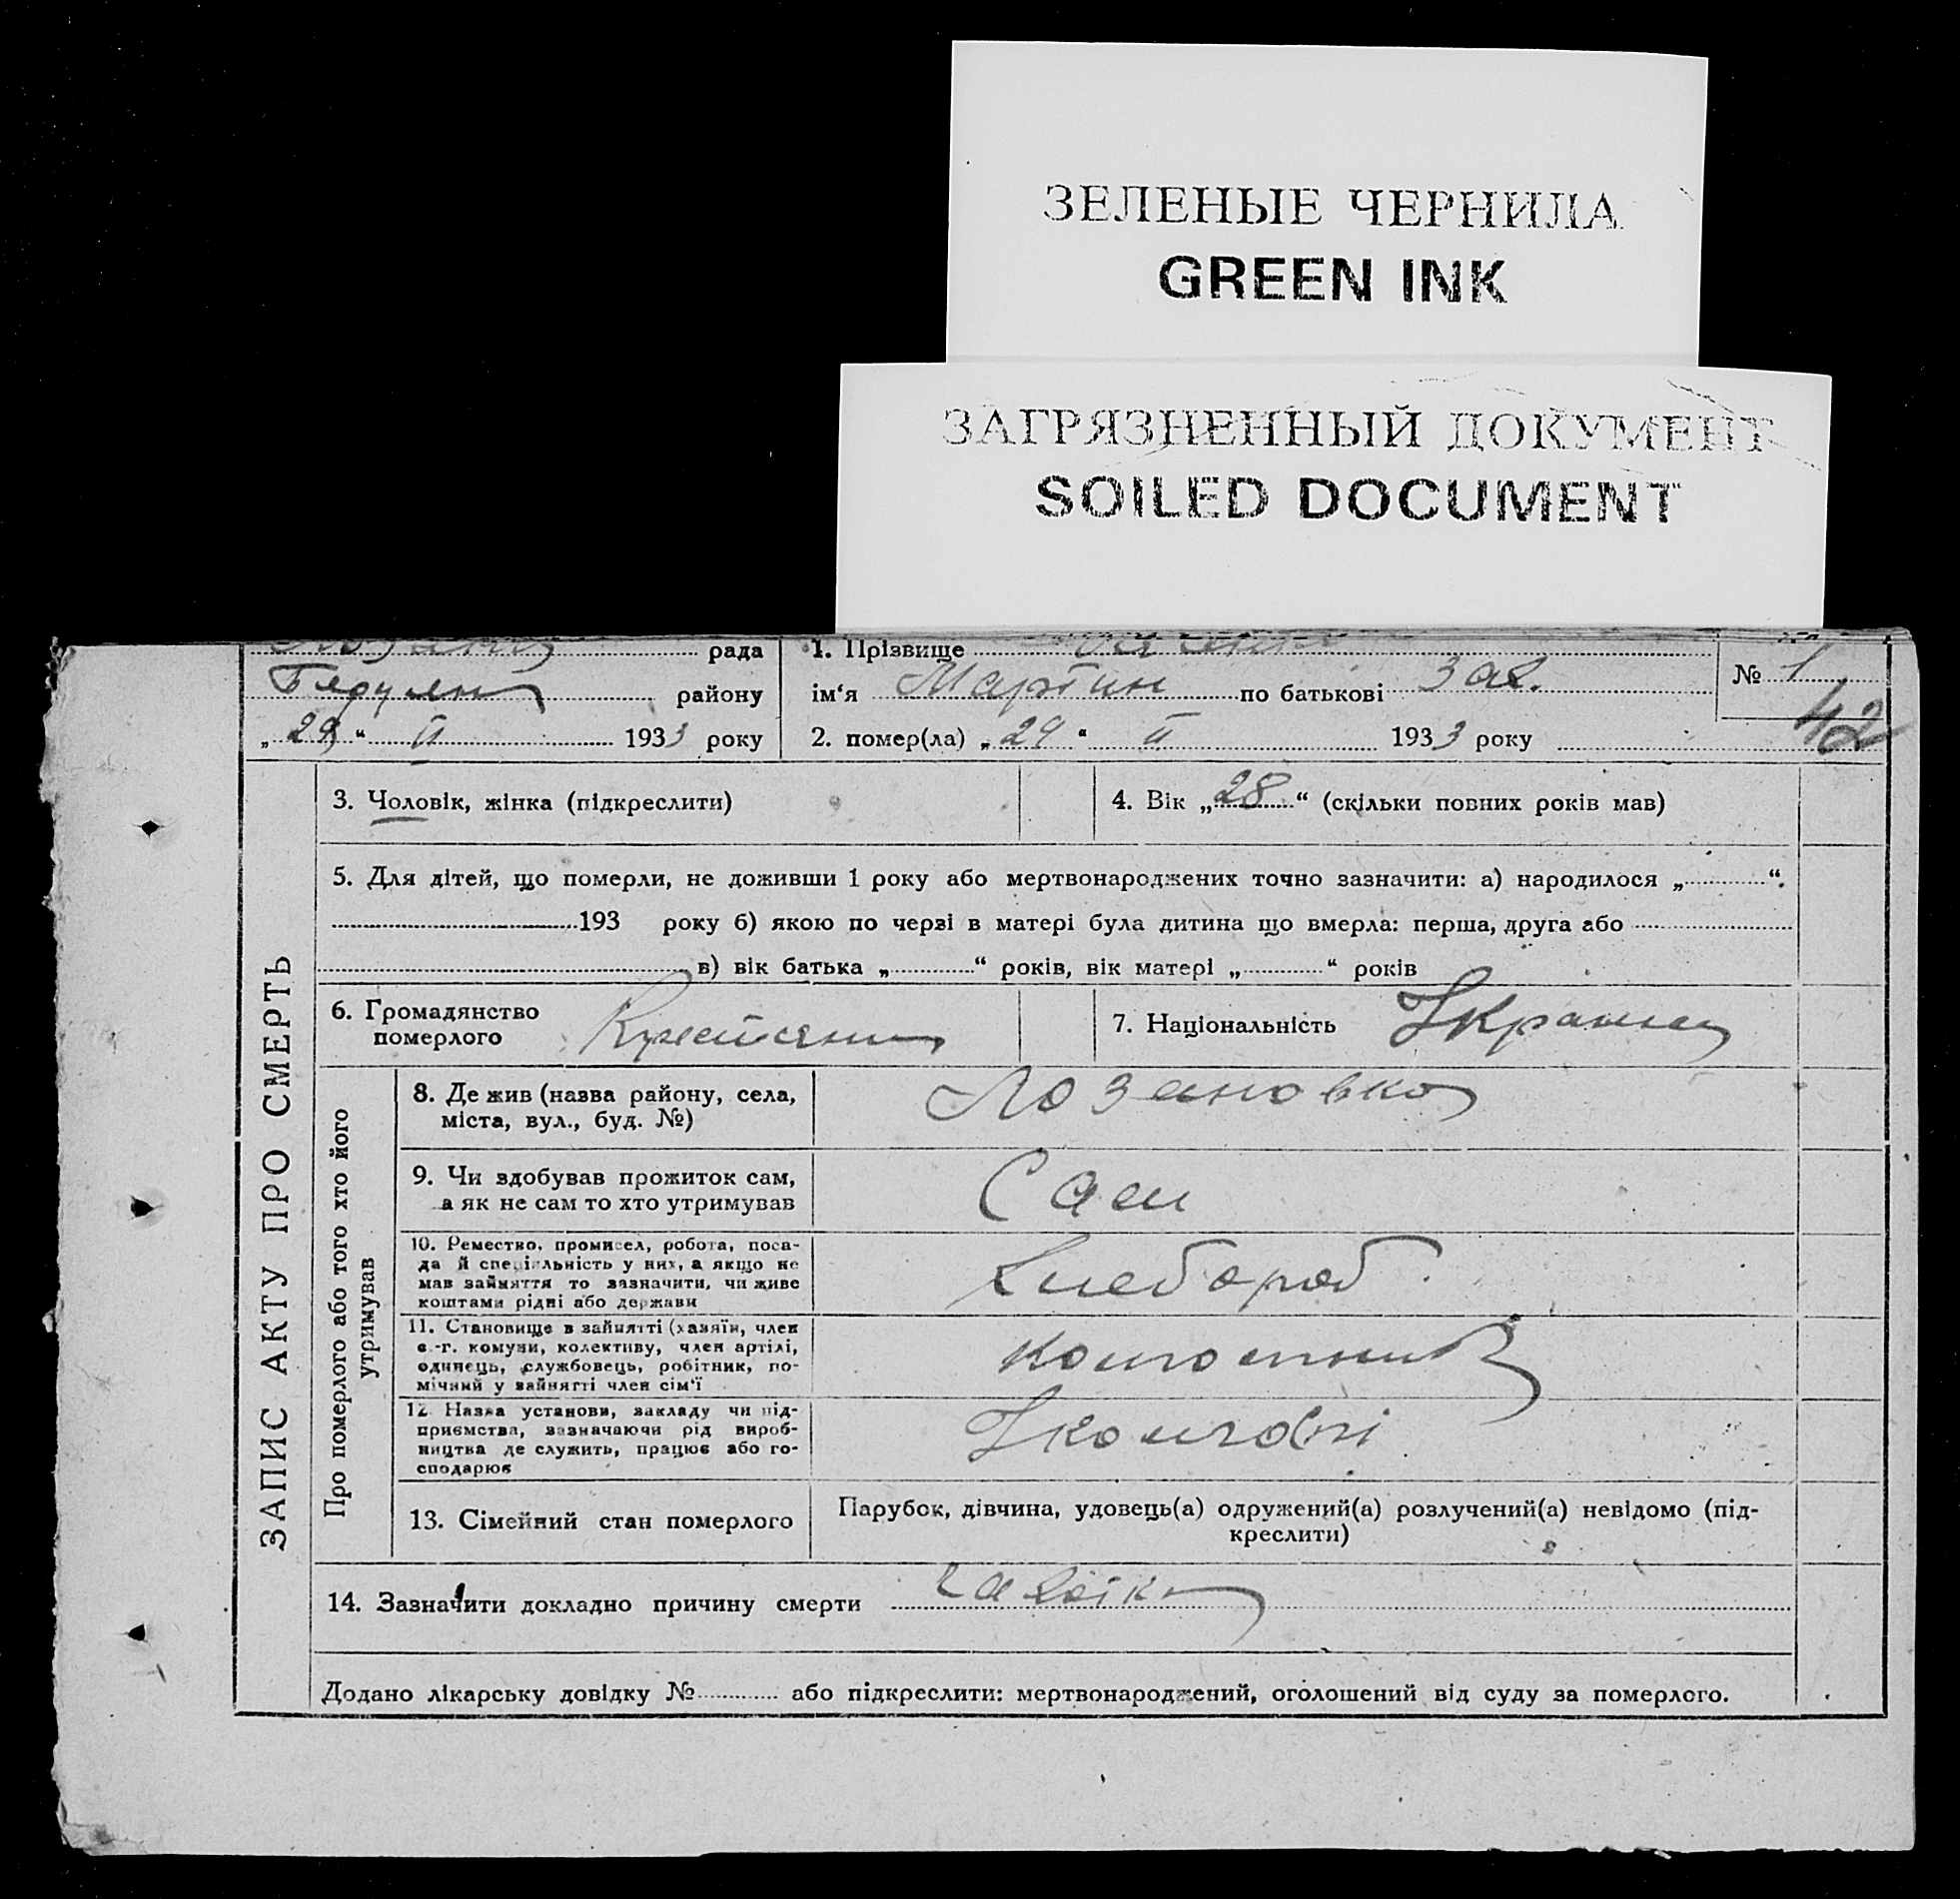 ЗЕЛЕНЫЕ ЧЕРНИЛА
GREEN INK
ЗАГРЯЗНЕННЫЙ ДОКУМЕНТ
SOILED DOCUMENT
рада
району
„29“ II 1933 року
1. Прізвище
ім‘я Мартин по батькові Зах.
№ 1
42
2. помер(ла) „29“ II 1933 року
ЗАПИС АКТУ ПРО СМЕРТЬ
3. Чоловік, жінка (підкреслити)
4. Вік „28“ (скільки повних років мав)
5. Для дітей, що померли, не доживши 1 року або мертвонароджених точно зазначити: а) народилося „ “
193 року б) якою по черзі в матері була дитина що вмерла: перша, друга або
в) вік батька „ “ років, вік матері „ “ років
6. Громадянство
померлого
7. Національність
Про померлого або того хто його
утримував
8. Де жив (назва району, села,
міста, вул., буд. №)
Лозановка
9. Чи здобував прожиток сам,
а як не сам то хто утримував
Сам
10. Ремество, промисел, робота, поса-
да й спеціяльність у них, а якщо не
мав зайняття то зазначити, чи живе
коштами рідні або держави
Хлебороб
11. Становище в зайнятті (хазяїн, член
с.-г. комуни, колективу, член артілі,
одинець, службовець, робітник, по-
мічний у зайнятті член сім‘ї
12 Назва установи, закладу чи під-
приємства, зазначаючи рід вироб-
ництва де служить, працює або го-
сподарює
13. Сімейний стан померлого
Парубок, дівчина, удовець(а) одружений(а) розлучений(а) невідомо (під-
креслити)
14. Зазначити докладно причину смерти
Додано лікарську довідку № або підкреслити: мертвонароджений, оголошений від суду за померлого.